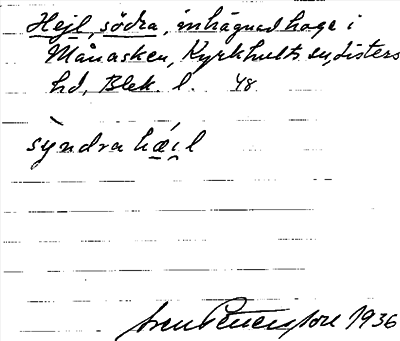 Hejl, södra, inhägnad hage i
Månasken, Kyrkhults sn, Listers
hd, Blek. l. 48
sỳndra hǽi̯l
Sven Petersson 1936